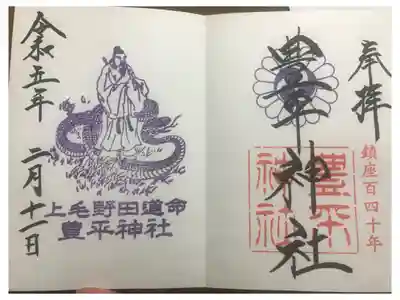 奉拝
豊平神社
鎮座百四十年
豊平
神社
令和五年
二月十一日
上毛野田道命
豊平神社